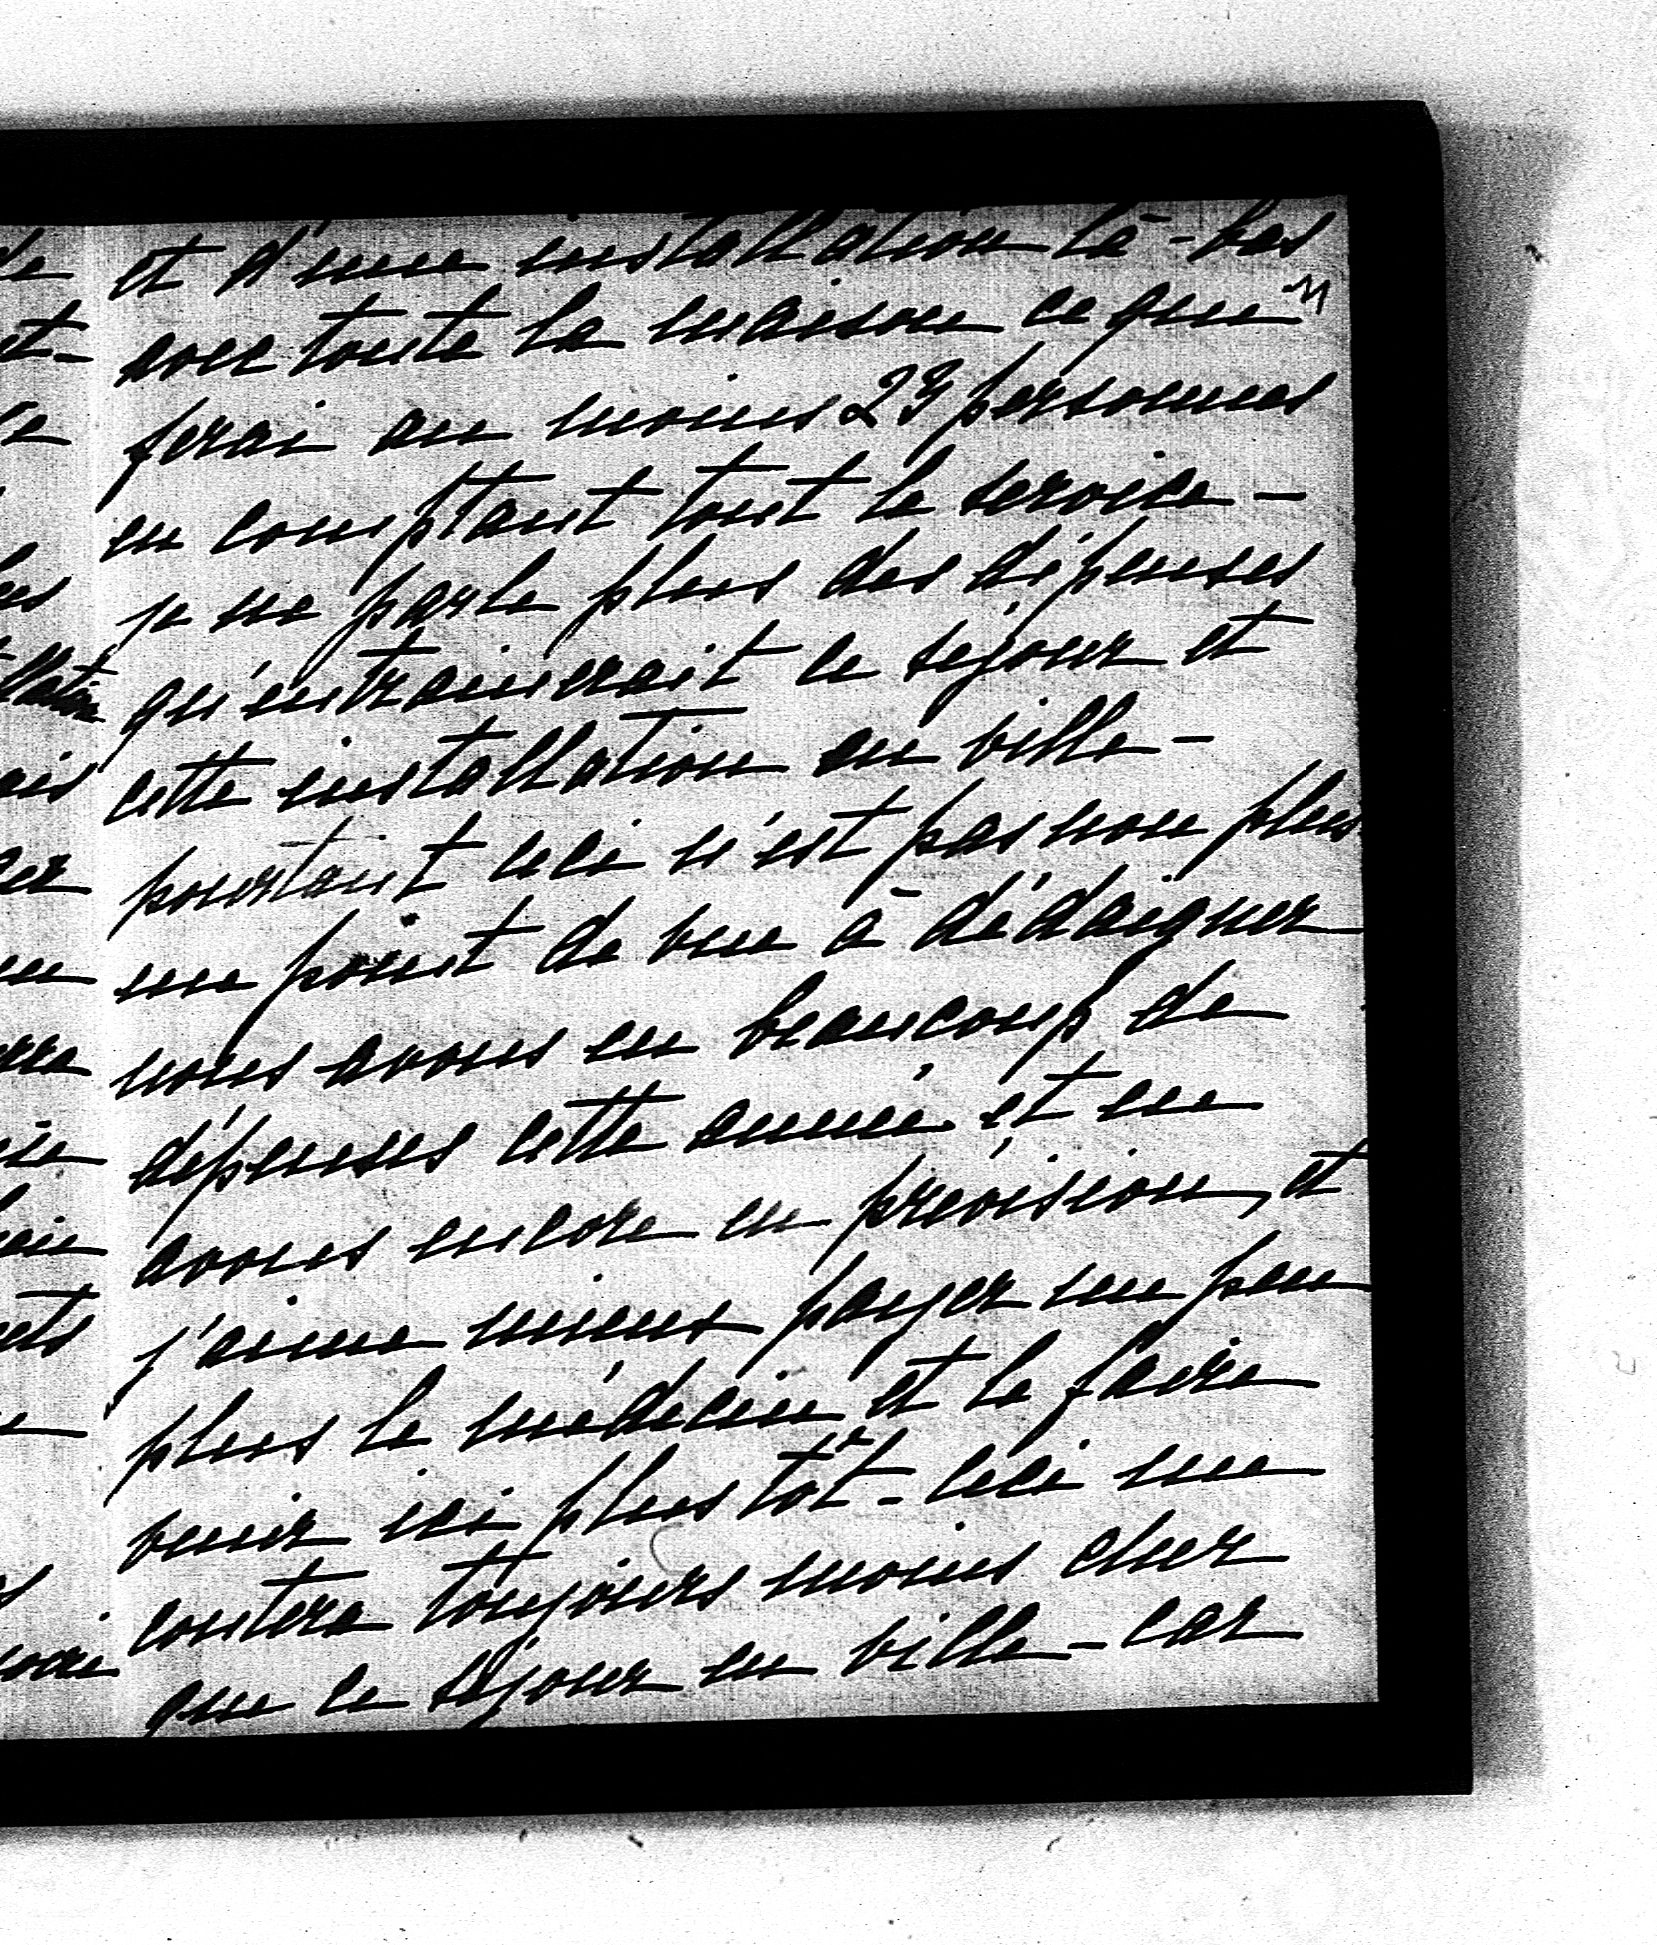 et d'une installation là-bas
avec toute la maison ce que
ferai au moins 23 personnes
en comptant tout le service –
je ne parle plus des dépenses
qu'entrainerait le séjour et
cette installation en ville –
pourtant ceci n'est pas non plus
un point de vue à dédaigner
nous avons eu beaucoup de
dépenses cette année et en
avons encore en prévision, et
j'aime mieux payer un peu
plus le médecin et le faire
venir ici plus tôt – ceci me
coutera toujours moins cher
que ce séjour en ville – car